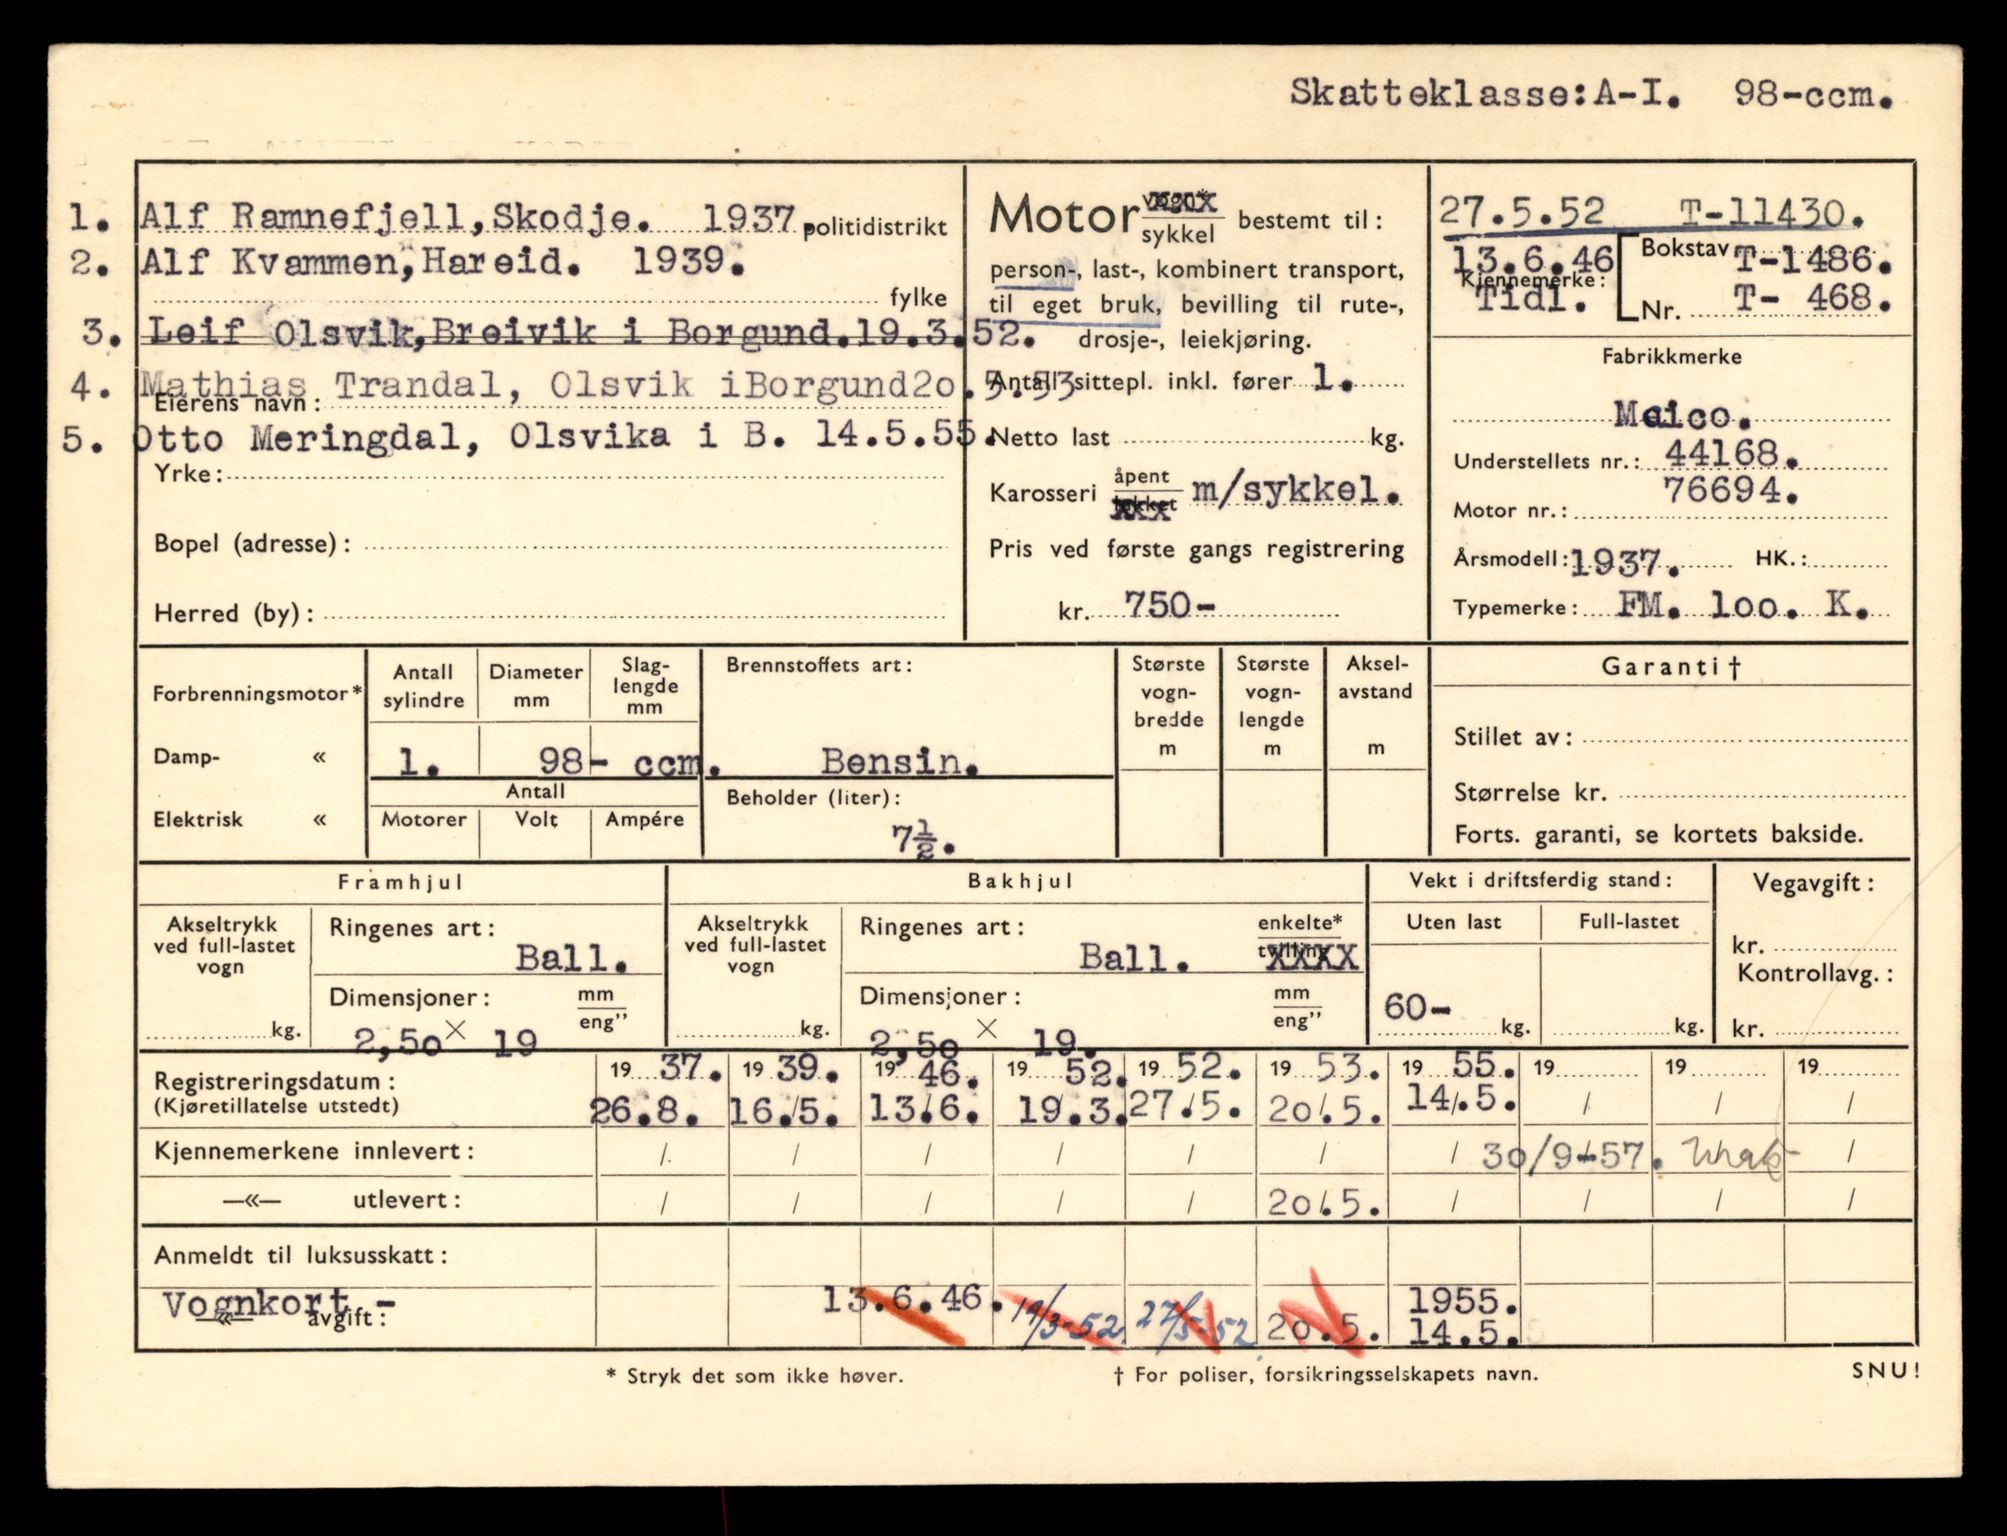 Skatteklasse:A-I. 98-ccm.
1. Alf Ramnefjell,Skodje. 1937 politidistrikt
2. Alf Kvammen,Hareid. 1939.
fylke
3. Leif Olsvik,Breivik i Borgund.19.3.52.
4. Mathias Trandal, Olsvik iBorgund2o.5.53
Eierens navn:
5. Otto Meringdal, Olsvika i B. 14.5.55.
Yrke:
Bopel (adresse):
Herred (by):
Motor vogn* sykkel bestemt til:
person-, last-, kombinert transport,
til eget bruk, bevilling til rute-,
drosje-, leiekjøring.
Antall sittepl. inkl. fører 1.
Netto last kg.
Karosseri åpent lukket m/sykkel.
Pris ved første gangs registrering
kr. 750-
27.5.52 T-11430.
13.6.46 Bokstav T-1486.
Kjennemerke:
Tidl. Nr. T- 468.
Fabrikkmerke
Maico.
Understellets nr.: 44168.
76694.
Motor nr.:
Årsmodell: 1937. HK.:
Typemerke: FM. loo. K.
Forbrenningsmotor*
Damp- «
Elektrisk «
Antall sylindre
Diameter mm
Slag-
lengde
mm
1. 98- ccm.
Antall
Motorer Volt Ampére
Brennstoffets art:
Bensin.
Beholder (liter):
7½.
Største
vogn-
bredde
m
Største
vogn-
lengde
m
Aksel-
avstand
m
Garanti†
Stillet av:
Størrelse kr.
Forts. garanti, se kortets bakside.
Framhjul
Akseltrykk
ved full-lastet
vogn
kg.
Ringenes art:
Ball.
Dimensjoner: mm eng”
2,5o × 19
Bakhjul
Akseltrykk
ved full-lastet
vogn
kg.
Ringenes art: enkelte* tvilling
Ball. XXXX
Dimensjoner: mm eng”
2,5o × 19.
Vekt i driftsferdig stand:
Uten last Full-lastet
60- kg. kg.
Vegavgift:
kr.
Kontrollavg.:
kr.
Registreringsdatum: 19 37. 19 39. 19 46. 19 52. 19 52. 19 53. 19 55. 19 19 19
(Kjøretillatelse utstedt) 26.8. 16./5. 13/6. 19.3. 27./5. 20/.5. 14/.5. / / /
Kjennemerkene innlevert: / / / / / / / 30/9-57. /
—«— utlevert: / / / / / 20/.5. / / / /
Anmeldt til luksusskatt:
Vognkort - 13.6.46. 19/3-52. 27/5-52. 20.5. 1955.
—«— avgift: 14.5.
* Stryk det som ikke høver.
† For poliser, forsikringsselskapets navn.
SNU!